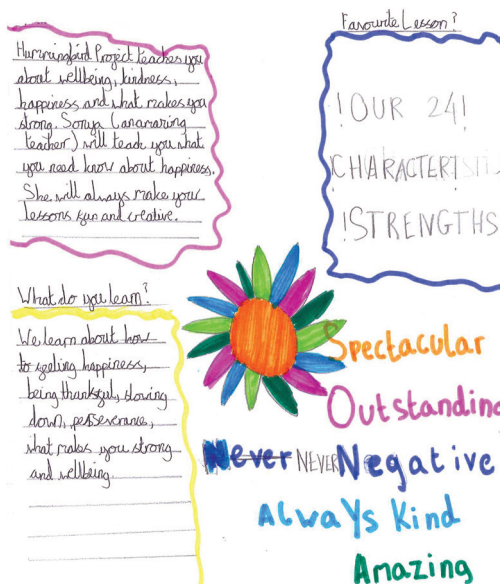 Hummingbird Project teaches you
about wellbeing, kindness,
happiness and what makes you
strong. Sonya (an amazing
teacher) will teach you what
you need know about happiness.
She will always make your
lessons fun and creative.
Favourite Lesson?
!OUR 24!
CHARACTERISTI
!STRENGTHS
What do you learn?
We learn about how
to feeling happiness,
being thankful, slowing
down, perseverance,
what makes you strong
and wellbeing.
Spectacular
Outstanding
Never NEVER Negative
Always Kind
Amazing